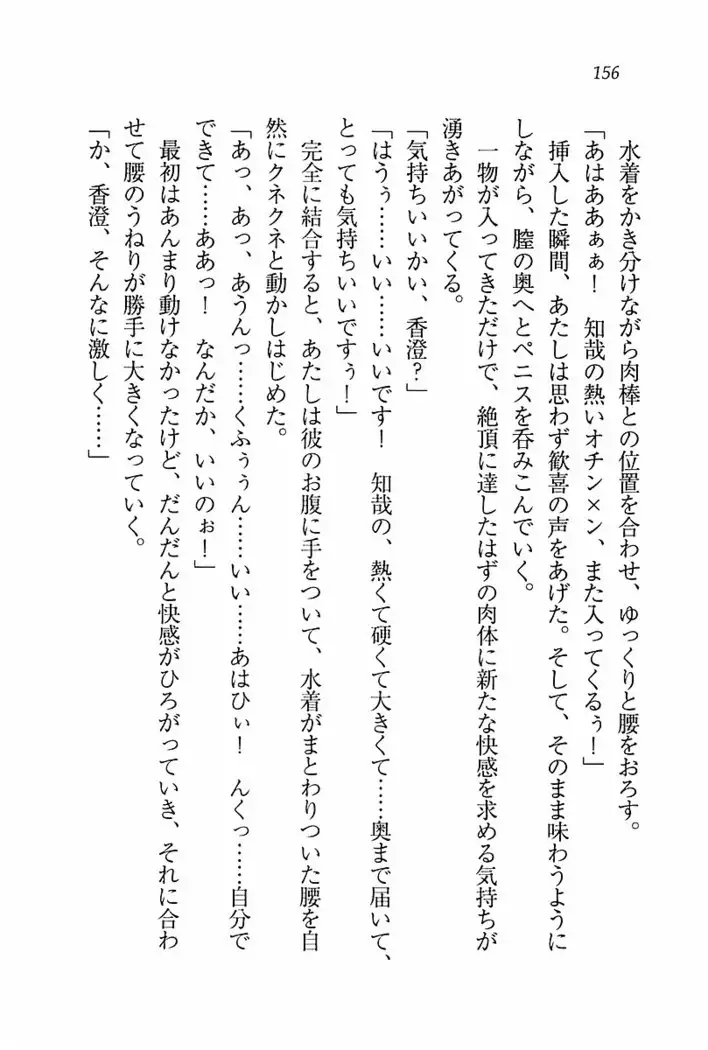 156
水着をかき分けながら肉棒との位置を合わせ、ゆっくりと腰をおろす。
「あはああぁぁ！　知哉の熱いオチン×ン、また入ってくるぅ！」
挿入した瞬間、あたしは思わず歓喜の声をあげた。そして、そのまま味わうように
しながら、膣の奥へとペニスを呑みこんでいく。
一物が入ってきただけで、絶頂に達したはずの肉体に新たな快感を求める気持ちが
湧きあがってくる。
「気持ちいいかい、香澄？」
「はうぅ……いい……いいです！　知哉の、熱くて硬くて大きくて……奥まで届いて、
とっても気持ちいいですぅ！」
完全に結合すると、あたしは彼のお腹に手をついて、水着がまとわりついた腰を自
然にクネクネと動かしはじめた。
「あっ、あっ、あうんっ……くふぅぅん……いい……あはひぃ！　んくっ……自分で
できて……ああっ！　なんだか、いいのぉ！」
最初はあんまり動けなかったけど、だんだんと快感がひろがっていき、それに合わ
せて腰のうねりが勝手に大きくなっていく。
「か、香澄、そんなに激しく……」